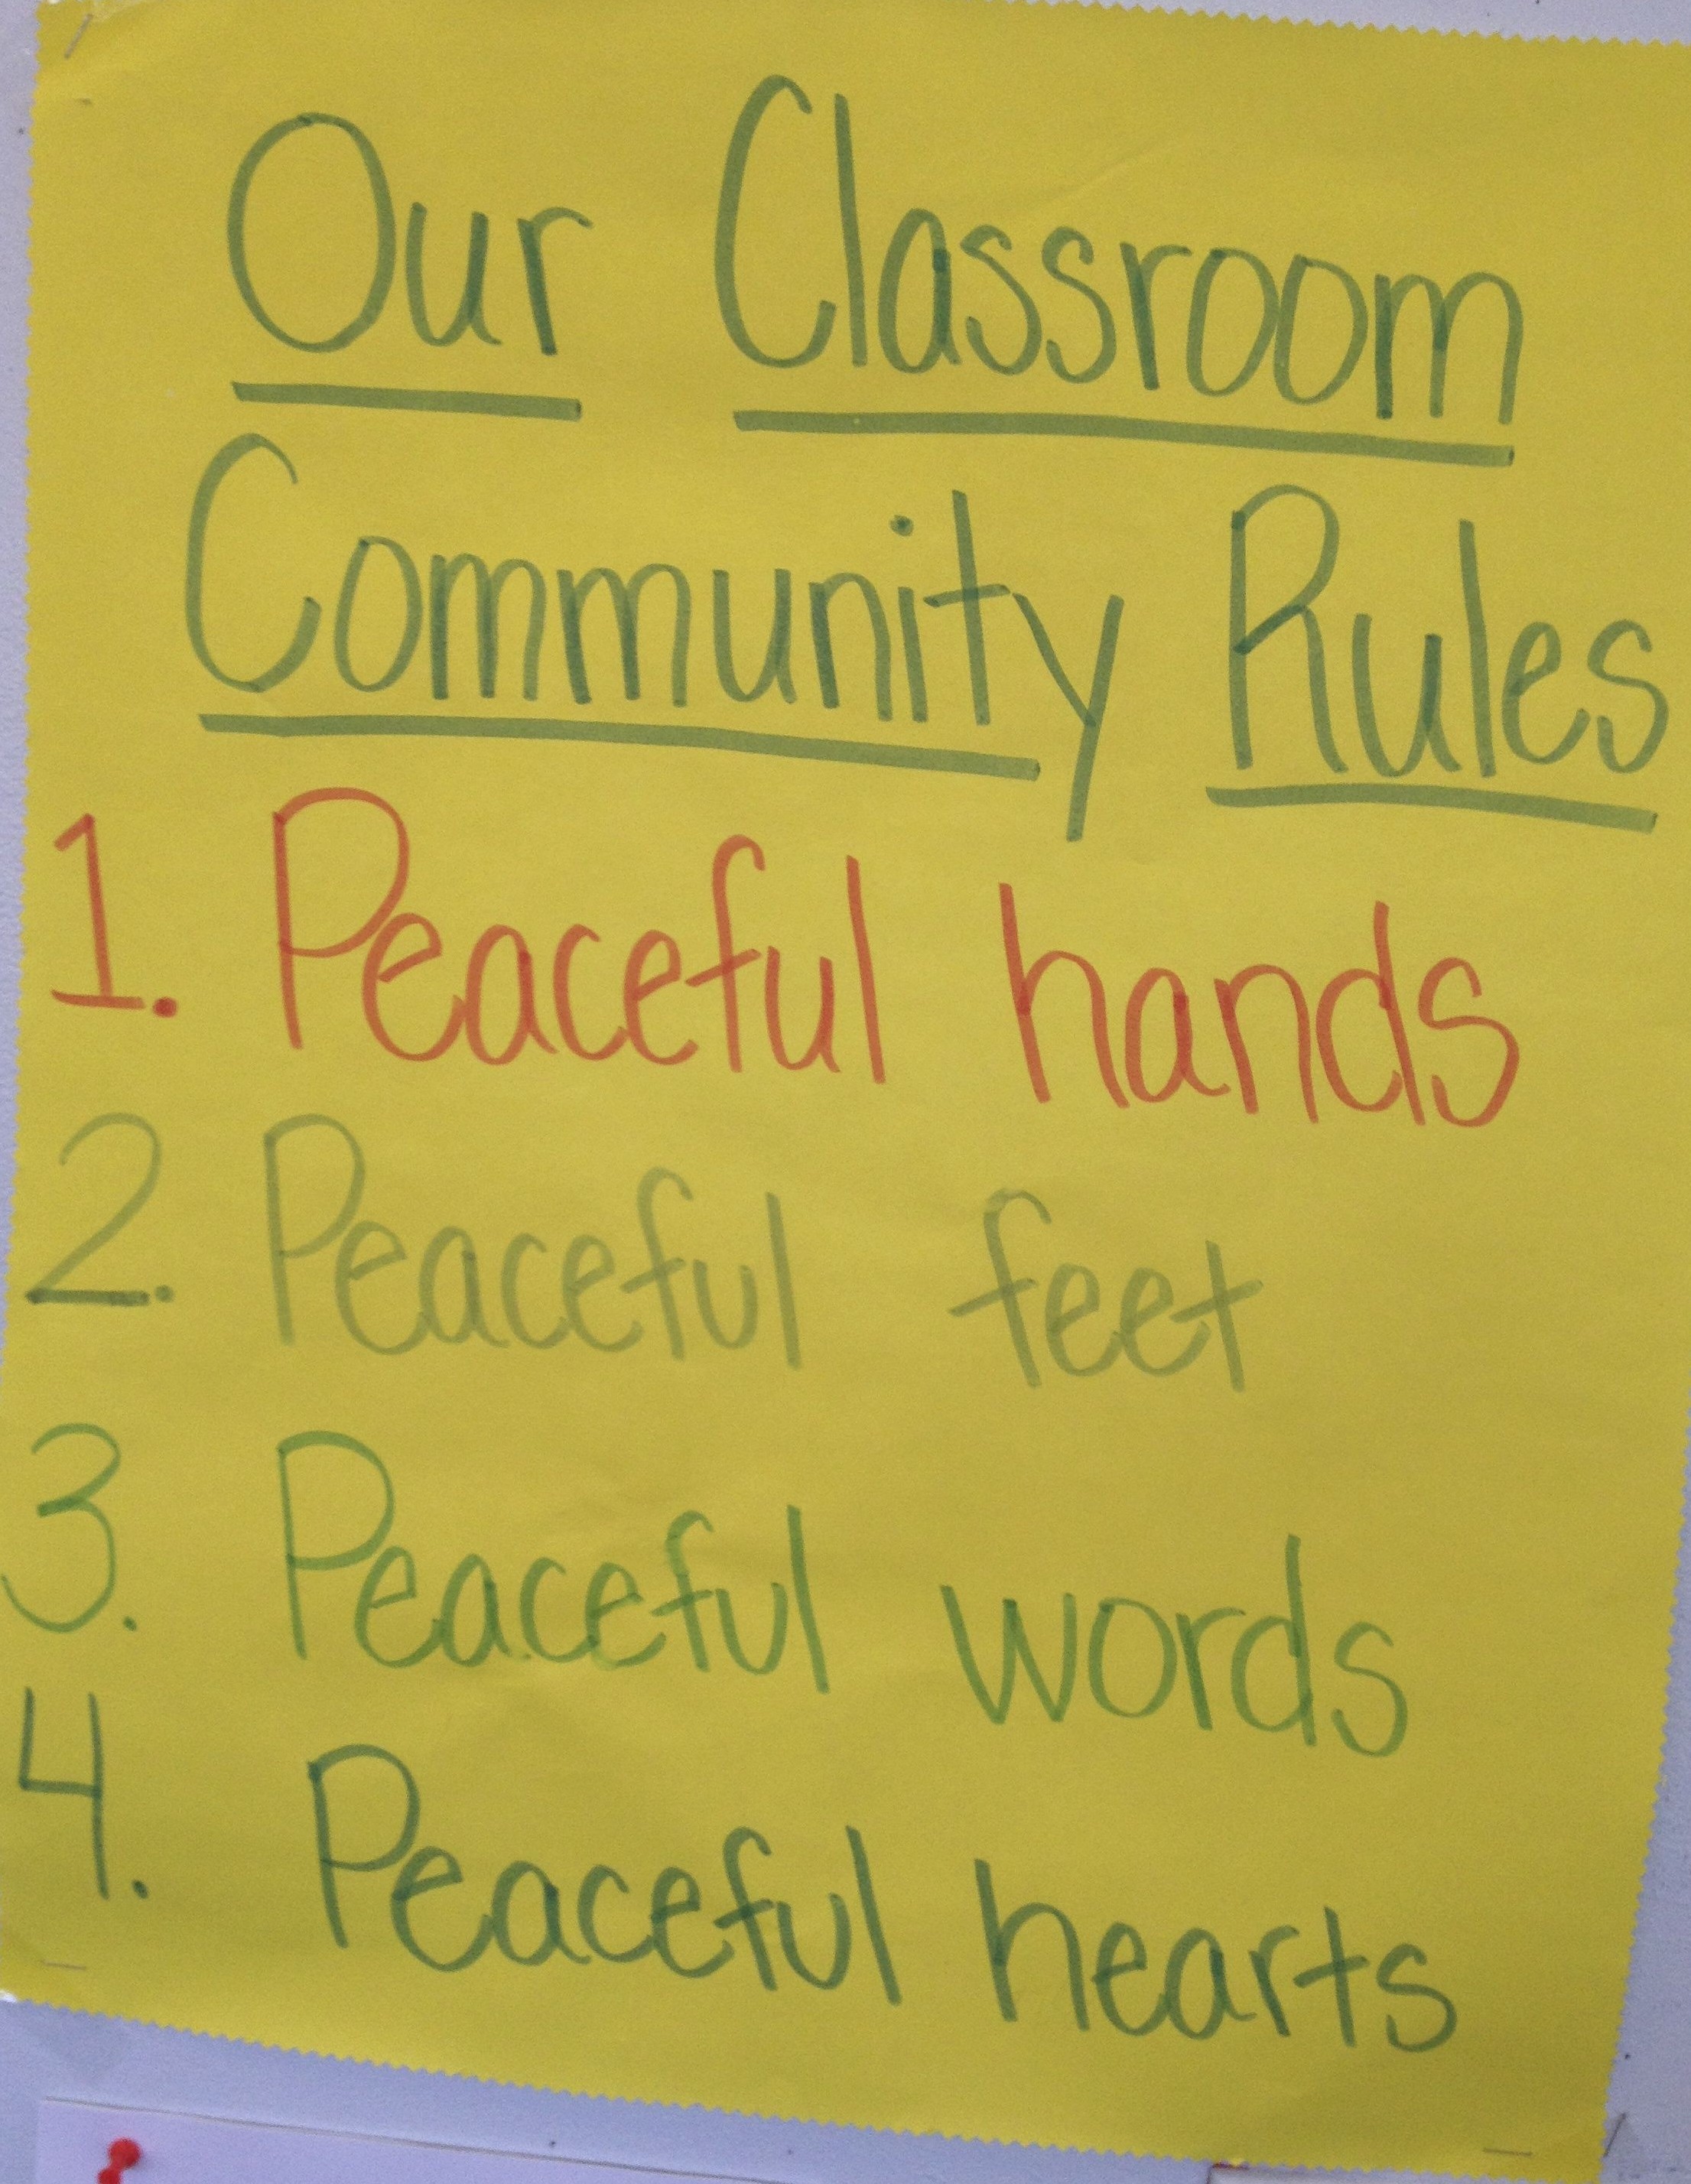 Our Classroom
Community Rules
1. Peaceful hands
2. Peaceful feet
3. Peaceful words
4. Peaceful hearts